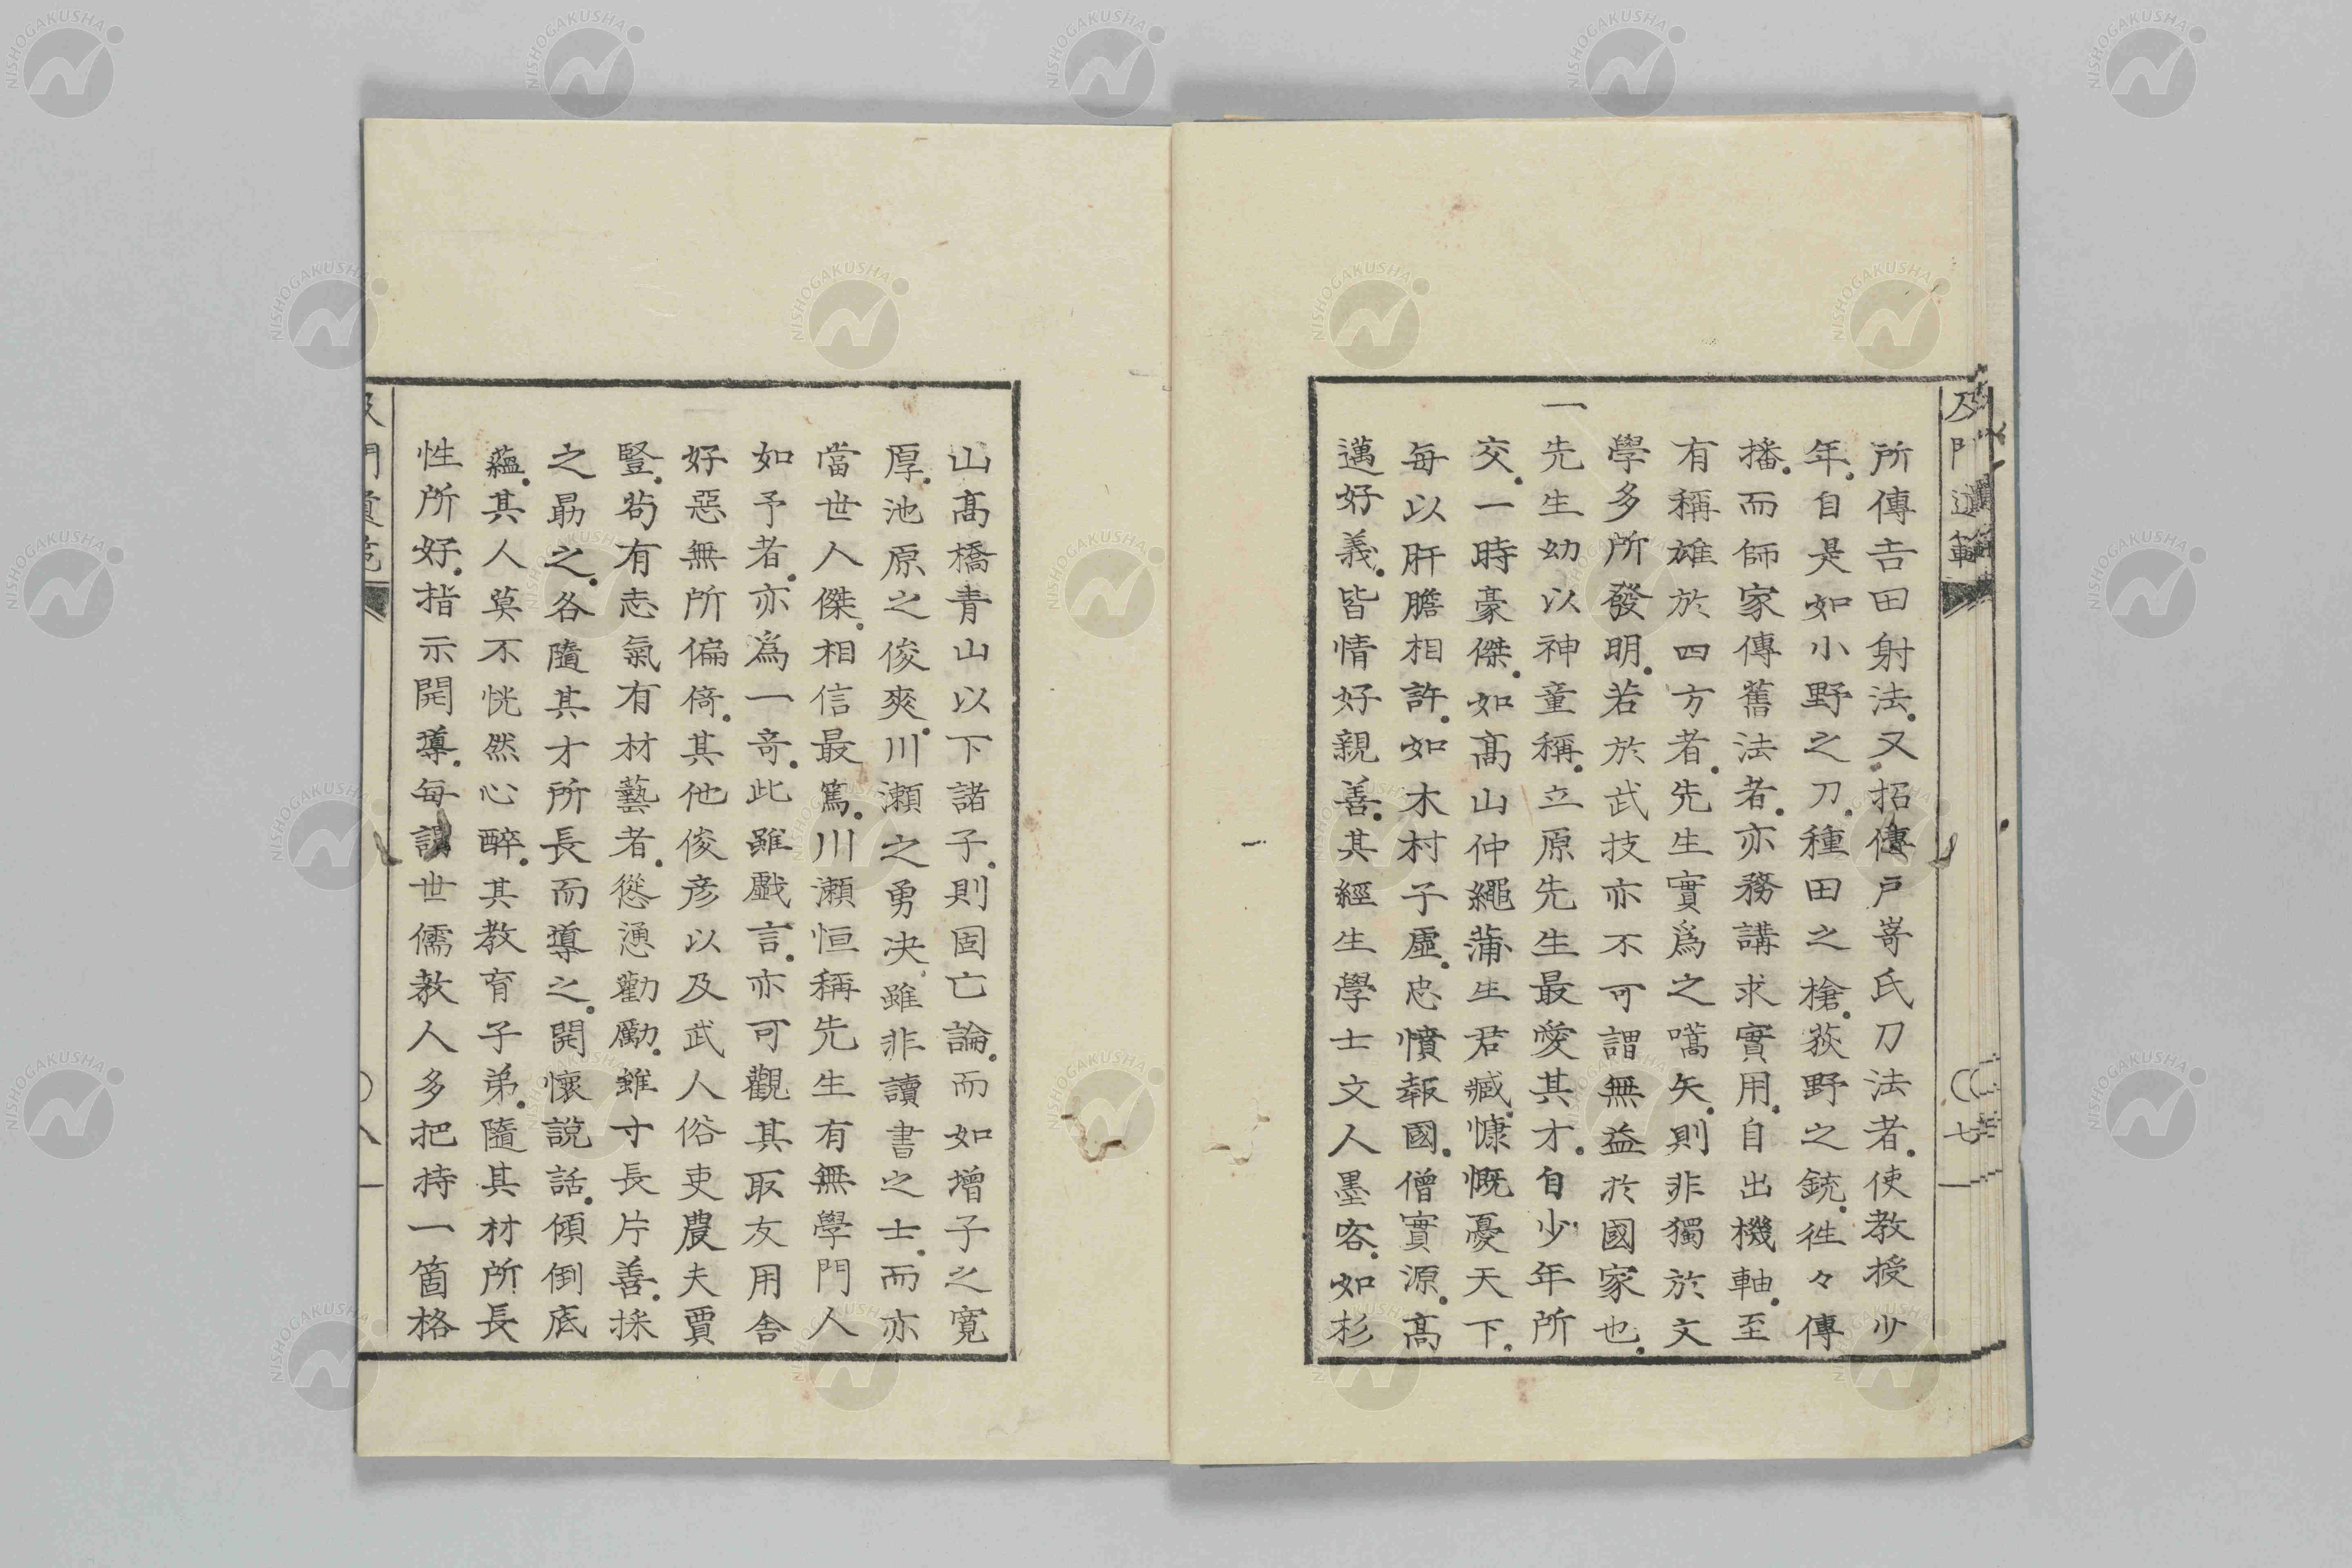 及門遺範
〇七
所傳吉田射法又招傳戶嵜氏刀法者使教授少
年自是如小野之刀種田之槍荻野之銃徃々傳
播而師家傳舊法者亦務講求實用自出機軸至
有稱雄於四方者先生實爲之嚆矢則非獨於文
學多所發明若於武技亦不可謂無益於國家也
一先生幼以神童稱立原先生最愛其才自少年所
交一時豪傑如髙山仲繩蒲生君臧慷慨憂天下
每以肝膽相許如木村子虛忠憤報國僧實源髙
邁好義皆情好親善其經生學士文人墨客如杉
山髙橋青山以下諸子則固亡論而如增子之寬
厚池原之俊爽川瀬之勇决雖非讀書之士而亦
當世人傑相信最篤川瀬恒稱先生有無學門人
如予者亦爲一竒此雖戲言亦可觀其取友用舎
好惡無所偏倚其他俊彦以及武人俗吏農夫賈
豎苟有志氣有材藝者慫慂勸勵雖寸長片善採
之勗之各隨其才所長而導之開懷說話傾倒底
蘊其人莫不恍然心醉其教育子弟隨其材所長
性所好指示開導每謂世儒教人多把持一箇格
及門遺範
〇八
NISHOGAKUSHA